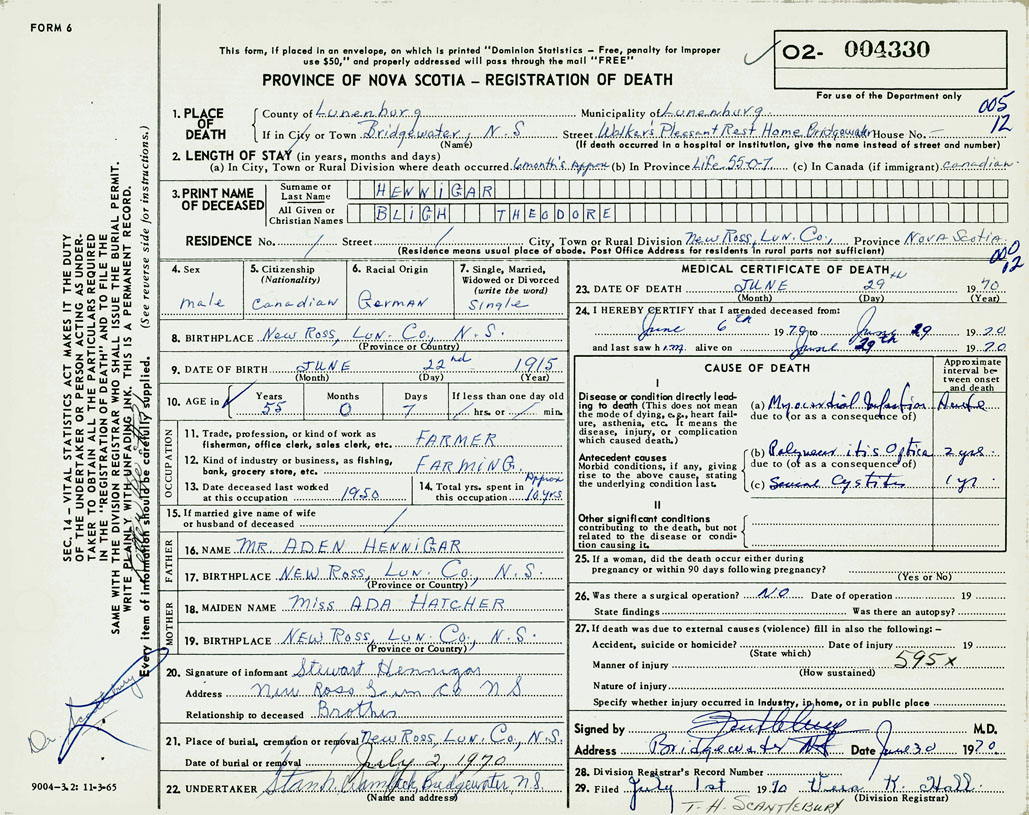 FORM 6
This form, if placed in an envelope, on which is printed "Dominion Statistics – Free, penalty for improper
use $50," and properly addressed will pass through the mail "FREE"
PROVINCE OF NOVA SCOTIA – REGISTRATION OF DEATH
02- 004330
For use of the Department only
005
12
1. PLACE OF DEATH
County of Lunenburg Municipality of Lunenburg
If in City or Town Bridgewater, N.S Street Walker's Pleasant Rest Home Bridgewater House No. –
(Name) (If death occurred in a hospital or institution, give the name instead of street and number)
2. LENGTH OF STAY (in years, months and days)
(a) In City, Town or Rural Division where death occurred 6 month's Approx (b) In Province Life 55-0-7 (c) In Canada (if immigrant) Canadian
3. PRINT NAME OF DECEASED
Surname or Last Name HENNIGAR
All Given or Christian Names BLIGH THEODORE
RESIDENCE No. / Street / City, Town or Rural Division New Ross, Lun. Co., Province Nova Scotia
(Residence means usual place of abode. Post Office Address for residents in rural parts not sufficient)
000
12
4. Sex
male
5. Citizenship
(Nationality)
Canadian
6. Racial Origin
German
7. Single, Married,
Widowed or Divorced
(write the word)
Single
8. BIRTHPLACE New Ross, Lun. Co., N.S.
(Province or Country)
9. DATE OF BIRTH JUNE 22nd 1915
(Month) (Day) (Year)
10. AGE in Years Months Days If less than one day old
55 0 7 / hrs. or / min.
OCCUPATION
11. Trade, profession, or kind of work as
fisherman, office clerk, sales clerk, etc. FARMER
12. Kind of industry or business, as fishing,
bank, grocery store, etc. FARMING
13. Date deceased last worked
at this occupation 1950
14. Total yrs. spent in
this occupation Approx 10 yrs.
15. If married give name of wife
or husband of deceased /
FATHER
16. NAME MR. ADEN HENNIGAR
17. BIRTHPLACE NEW ROSS, LUN. Co., N.S.
(Province or Country)
MOTHER
18. MAIDEN NAME Miss ADA HATCHER
19. BIRTHPLACE NEW ROSS, LUN. Co., N.S.
(Province or Country)
20. Signature of informant Stewart Hennigar
Address New Ross Lun Co NS
Relationship to deceased Brother
21. Place of burial, cremation or removal New Ross, Lun. Co., N.S.
Date of burial or removal July 2, 1970
22. UNDERTAKER Bridgewater, N.S.
(Name and address)
MEDICAL CERTIFICATE OF DEATH
23. DATE OF DEATH JUNE 29th 1970
(Month) (Day) (Year)
24. I HEREBY CERTIFY that I attended deceased from:
June 6th 1970 to June 29 1970
and last saw him alive on June 29th 1970
CAUSE OF DEATH
Approximate
interval between onset
and death
I
Disease or condition directly leading to death (This does not mean
the mode of dying, e.g., heart failure, asthenia, etc. It means the
disease, injury, or complication
which caused death.)
(a) Myocardial Infarction Acute
due to (or as a consequence of)
Antecedent causes
Morbid conditions, if any, giving
rise to the above cause, stating
the underlying condition last.
(b) Optica 2 yrs
due to (or as a consequence of)
(c) Cystitis 1 yr
II
Other significant conditions
contributing to the death, but not
related to the disease or condition causing it.
25. If a woman, did the death occur either during
pregnancy or within 90 days following pregnancy?
(Yes or No)
26. Was there a surgical operation? NO Date of operation 19
State findings Was there an autopsy?
27. If death was due to external causes (violence) fill in also the following: –
Accident, suicide or homicide? Date of injury 19
(State which)
595x
Manner of injury
(How sustained)
Nature of injury
Specify whether injury occurred in industry, in home, or in public place
Signed by M.D.
Address Bridgewater NS Date June 30 1970
28. Division Registrar's Record Number
29. Filed July 1st 1970 Vera K. Hall
(Division Registrar)
T. H. SCANTLEBURY
SEC. 14 – VITAL STATISTICS ACT MAKES IT THE DUTY
OF THE UNDERTAKER OR PERSON ACTING AS UNDERTAKER TO OBTAIN ALL THE PARTICULARS REQUIRED
IN THE "REGISTRATION OF DEATH" AND TO FILE THE
SAME WITH THE DIVISION REGISTRAR WHO SHALL ISSUE THE BURIAL PERMIT.
WRITE PLAINLY WITH UNFADING INK. THIS IS A PERMANENT RECORD.
Every item of information should be carefully supplied. (See reverse side for instructions.)
Dr. Scantlebury
9004-3.2: 11-3-65